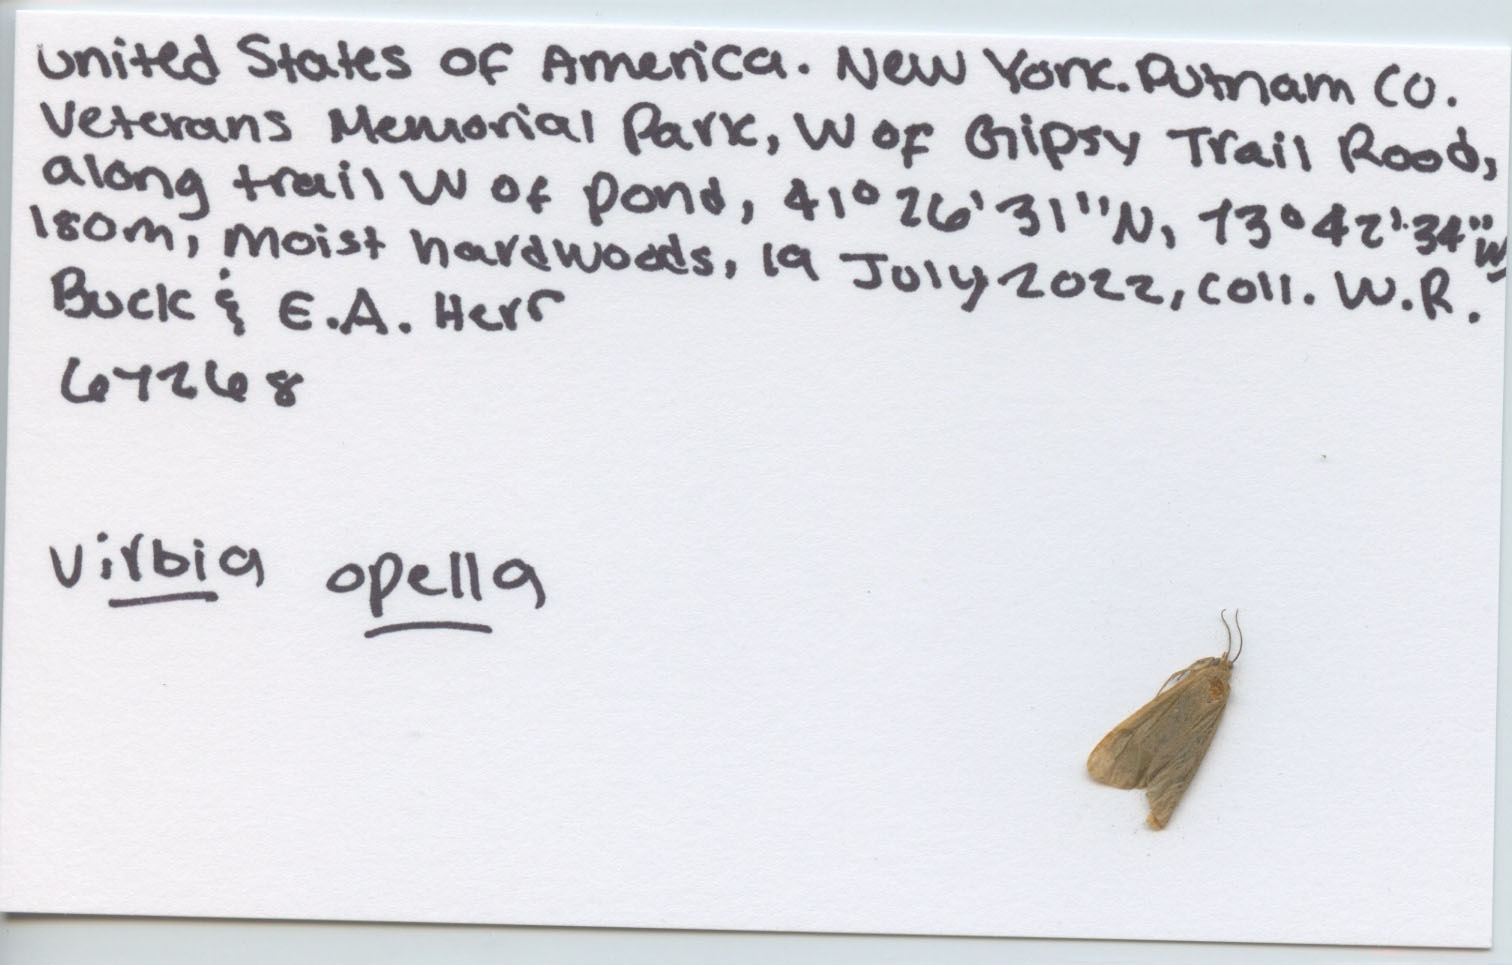 United States of America. New York. Putnam Co.
Veterans Memorial Park, W of Gipsy Trail Road,
along trail W of pond, 41° 26' 31" N, 73° 42' 34" W,
180m, moist hardwoods, 19 July 2022, coll. W.R.
Buck & E.A. Herr
67268
Virbia opella